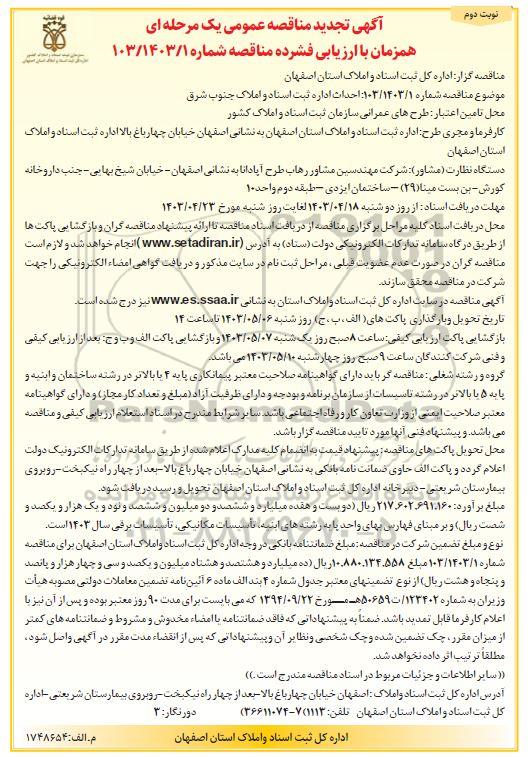 نوبت دوم
آگهی تجدید مناقصه عمومی یک مرحله ای
همزمان با ارزیابی فشرده مناقصه شماره ۱۰۳/۱۴۰۳/۱
قوه قضائیه
سازمان ثبت اسناد و املاک کشور
اداره کل ثبت اسناد و املاک استان اصفهان
مناقصه گزار: اداره کل ثبت اسناد و املاک استان اصفهان
موضوع مناقصه شماره ۱۰۳/۱۴۰۳/۱: احداث اداره ثبت اسناد و املاک جنوب شرق
محل تامین اعتبار: طرح های عمرانی سازمان ثبت اسناد و املاک کشور
کارفرما و مجری طرح: اداره ثبت اسناد و املاک استان اصفهان به نشانی اصفهان خیابان چهارباغ بالا اداره ثبت اسناد و املاک
استان اصفهان
دستگاه نظارت (مشاور): شرکت مهندسین مشاور رهاب طرح آپادانا به نشانی اصفهان - خیابان شیخ بهایی - جنب داروخانه
کورش - بن بست مینا (۲۹) – ساختمان ایزدی – طبقه دوم واحد ۱۰
مهلت دریافت اسناد: از روز دو شنبه ۱۴۰۳/۰۴/۱۸ لغایت روز شنبه مورخ ۱۴۰۳/۰۴/۲۳
محل دریافت اسناد کلیه مراحل برگزاری مناقصه از دریافت اسناد مناقصه تا ارائه پیشنهاد مناقصه گران و بازگشایی پاکت ها
از طریق درگاه سامانه تدارکات الکترونیکی دولت (ستاد) به آدرس (www.setadiran.ir) انجام خواهد شد و لازم است
مناقصه گران در صورت عدم عضویت قبلی، مراحل ثبت نام در سایت مذکور و دریافت گواهی امضاء الکترونیکی را جهت
شرکت در مناقصه محقق سازند.
آگهی مناقصه در سایت اداره کل ثبت اسناد و املاک استان به نشانی www.es.ssaa.ir نیز درج شده است.
تاریخ تحویل و بارگذاری پاکت های (الف، ب، ج) روز شنبه ۱۴۰۳/۰۵/۰۶ تا ساعت ۱۴
بازگشایی پاکت ارزیابی کیفی: ساعت ۸ صبح روز یک شنبه ۱۴۰۳/۰۵/۰۷ و بازگشایی پاکت الف و ب و ج: بعد از ارزیابی کیفی
و فنی شرکت کنندگان ساعت ۹ صبح روز چهارشنبه ۱۴۰۳/۰۵/۱۰ می باشد.
گروه و رشته شغلی: مناقصه گر باید دارای گواهینامه صلاحیت معتبر پیمانکاری پایه ۴ یا بالاتر در رشته ساختمان و ابنیه و
پایه ۵ یا بالاتر در رشته تاسیسات از سازمان برنامه و بودجه و دارای ظرفیت آزاد (مبلغ و تعداد کار مجاز) و دارای گواهینامه
معتبر صلاحیت ایمنی از وزارت تعاون کار و رفاه اجتماعی باشد. سایر شرایط مندرج در اسناد استعلام ارزیابی کیفی و مناقصه
می باشد. و پیشنهاد فنی آنها مورد تایید مناقصه گزار باشد.
محل تحویل پاکت های مناقصه: پیشنهاد قیمت به انضمام کلیه مدارک اعلام شده از طریق سامانه تدارکات الکترونیک دولت
اعلام گردد و پاکت الف حاوی ضمانت نامه بانکی به نشانی اصفهان خیابان چهارباغ بالا-بعد از چهار راه نیکبخت-روبروی
بیمارستان شریعتی - دبیرخانه اداره کل ثبت اسناد و املاک استان اصفهان تحویل و رسید دریافت شود.
مبلغ برآورد: ۲۱۷.۶۰۲.۶۹۱.۱۶۰ ریال (دویست و هفده میلیارد و ششصد و دو میلیون و ششصد و نود و یک هزار و یکصد و
شصت ریال) و بر مبنای فهارس بهای واحد پایه رشته های ابنیه، تأسیسات مکانیکی، تأسیسات برقی سال ۱۴۰۳ است.
نوع و مبلغ تضمین شرکت در مناقصه: مبلغ ضمانتنامه بانکی در وجه اداره کل ثبت اسناد و املاک استان اصفهان برای مناقصه
شماره ۱۰۳/۱۴۰۳/۱ مبلغ ۱۰.۸۸۰.۱۳۴.۵۵۸ ریال (ده میلیارد و هشتصد و هشتاد میلیون و یکصد و سی و چهار هزار و پانصد
و پنجاه و هشت ریال) از نوع تضمینهای معتبر جدول شماره ۴ بند الف ماده ۶ آئین نامه تضمین معاملات دولتی مصوبه هیأت
وزیران به شماره ۱۲۳۴۰۲/ت۵۰۶۵۹هـ مـــورخ ۱۳۹۴/۰۹/۲۲ که می بایست برای مدت ۹۰ روز معتبر بوده و پس از آن نیز با
اعلام کارفرما قابل تمدید باشد. ضمناً به پیشنهاداتی که فاقد ضمانتنامه یا امضاء مخدوش و مشروط و ضمانتنامه های کمتر
از میزان مقرر، چک تضمین شده و چک شخصی و نظایر آن و پیشنهاداتی که پس از انقضاء مدت مقرر در آگهی واصل شود،
مطلقاً ترتیب اثر داده نخواهد شد.
((سایر اطلاعات و جزئیات مربوط در اسناد مناقصه مندرج است.))
آدرس اداره کل ثبت اسناد و املاک: اصفهان خیابان چهارباغ بالا-بعد از چهار راه نیکبخت-روبروی بیمارستان شریعتی-اداره
کل ثبت اسناد و املاک استان اصفهان تلفن: ۱۱۱۳(۷-۳۶۶۱۱۰۷۴) دورنگار: ۳
اداره کل ثبت اسناد و املاک استان اصفهان
م.الف: ۱۷۴۸۶۵۴